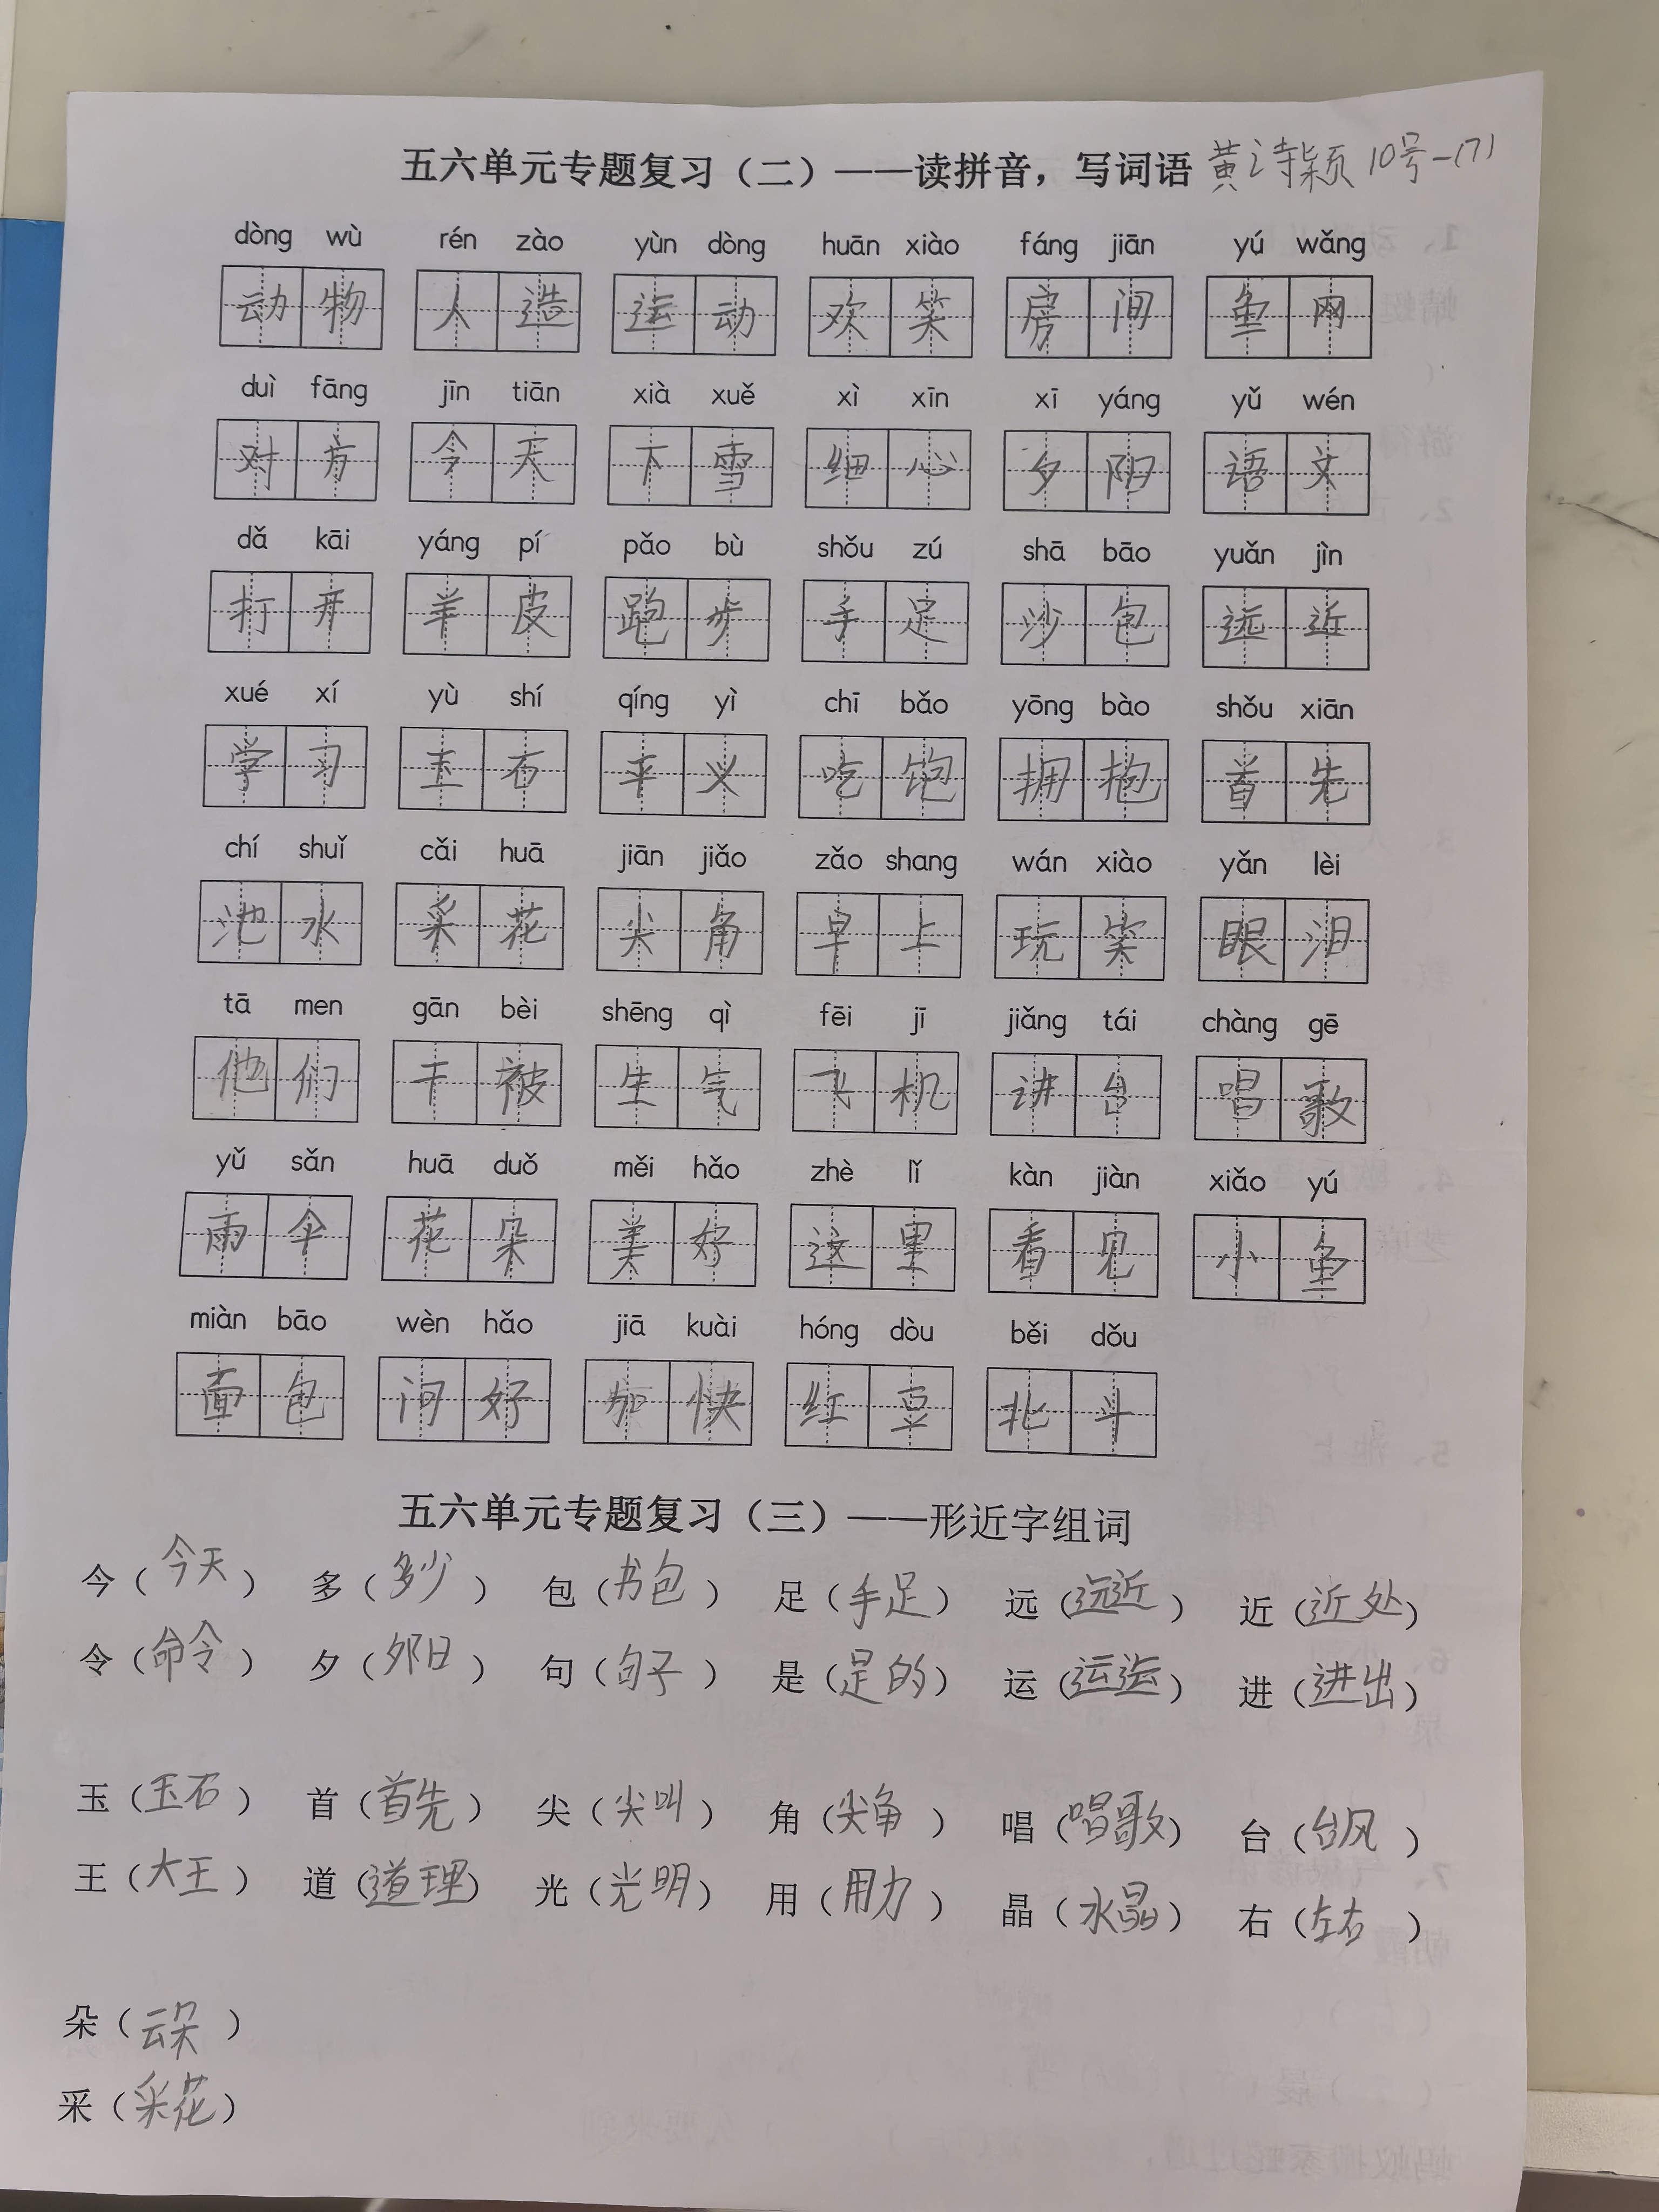 五六单元专题复习（二）——读拼音，写词语 黄诗颖 10号 一(7)
dòng wù rén zào yùn dòng huān xiào fáng jiān yú wǎng
动物 人造 运动 欢笑 房间 鱼网
duì fāng jīn tiān xià xuě xì xīn xī yáng yǔ wén
对方 今天 下雪 细心 夕阳 语文
dǎ kāi yáng pí pǎo bù shǒu zú shā bāo yuǎn jìn
打开 羊皮 跑步 手足 沙包 远近
xué xí yù shí qíng yì chī bǎo yōng bào shǒu xiān
学习 玉石 平义 吃饱 拥抱 首先
chí shuǐ cǎi huā jiān jiǎo zǎo shang wán xiào yǎn lèi
池水 采花 尖角 早上 玩笑 眼泪
tā men gān bèi shēng qì fēi jī jiǎng tái chàng gē
他们 干被 生气 飞机 讲台 唱歌
yǔ sǎn huā duǒ měi hǎo zhè lǐ kàn jiàn xiǎo yú
雨伞 花朵 美好 这里 看见 小鱼
miàn bāo wèn hǎo jiā kuài hóng dòu běi dǒu
面包 问好 加快 红豆 北斗
五六单元专题复习（三）——形近字组词
今（今天） 多（多少） 包（书包） 足（手足） 远（远近） 近（近处）
令（命令） 夕（日） 句（句子） 是（是的） 运（运运） 进（进出）
玉（玉石） 首（首先） 尖（尖叫） 角（尖角） 唱（唱歌） 台（台风）
王（大王） 道（道理） 光（光明） 用（用力） 晶（水晶） 右（左右）
朵（云朵）
采（采花）